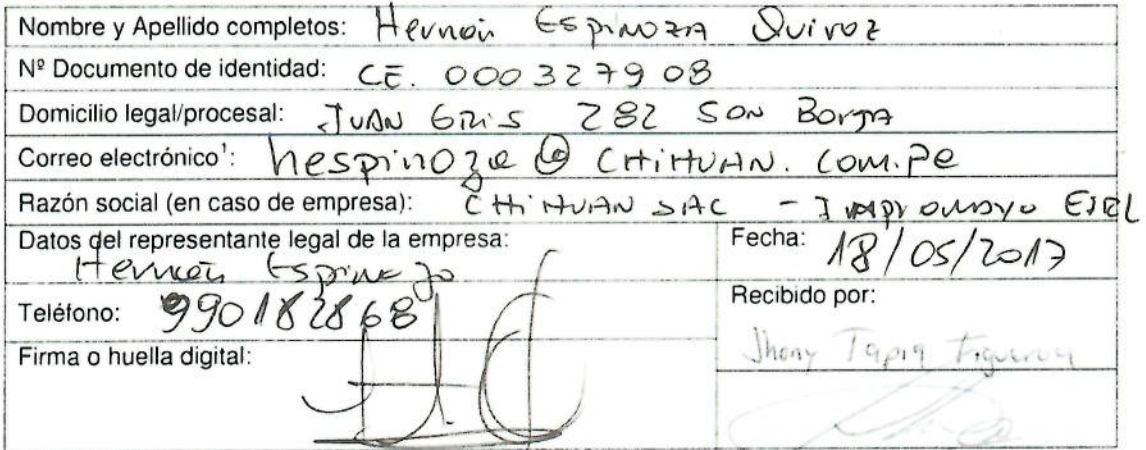 Nombre y Apellido completos: Hernán Espinoza Quiroz
Nº Documento de identidad: CE. 000327908
Domicilio legal/procesal: JUAN GRIS 282 SAN Borja
Correo electrónico¹: hespinoza@CHIHUAN.COM.Pe
Razón social (en caso de empresa): CHIHUAN SAC - EIRL
Datos del representante legal de la empresa:
Hernán Espinoza
Fecha: 18/05/2017
Teléfono: 990182868
Recibido por:
Jhony Tapia Figueroa
Firma o huella digital: